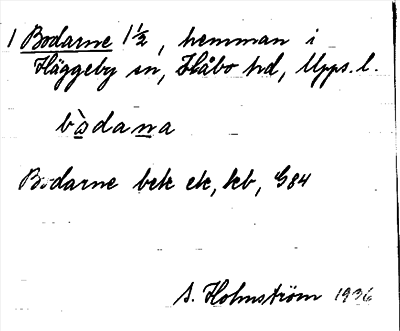 1 Bodarne 1½, hemman i
Häggeby sn, Håbo hd, Upps. l.
bòdana
Bodarne bek ek, kb, G84
S. Holmström 1936